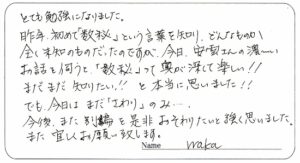 とても勉強になりました。
昨年、初めて「数秘」という言葉を知り、どんなものか
全く未知のものだったのですが、今日、安間さんの濃ーい
お話を伺うと、「数秘」って奥が深くて楽しい!!
まだまだ知りたい!! と本当に思いました!!
でも、今日はまだ「さわり」のみ…。
今後、また別編を是非おそわりたいと強く思いました。
また宜しくお願い致します。
Name waka